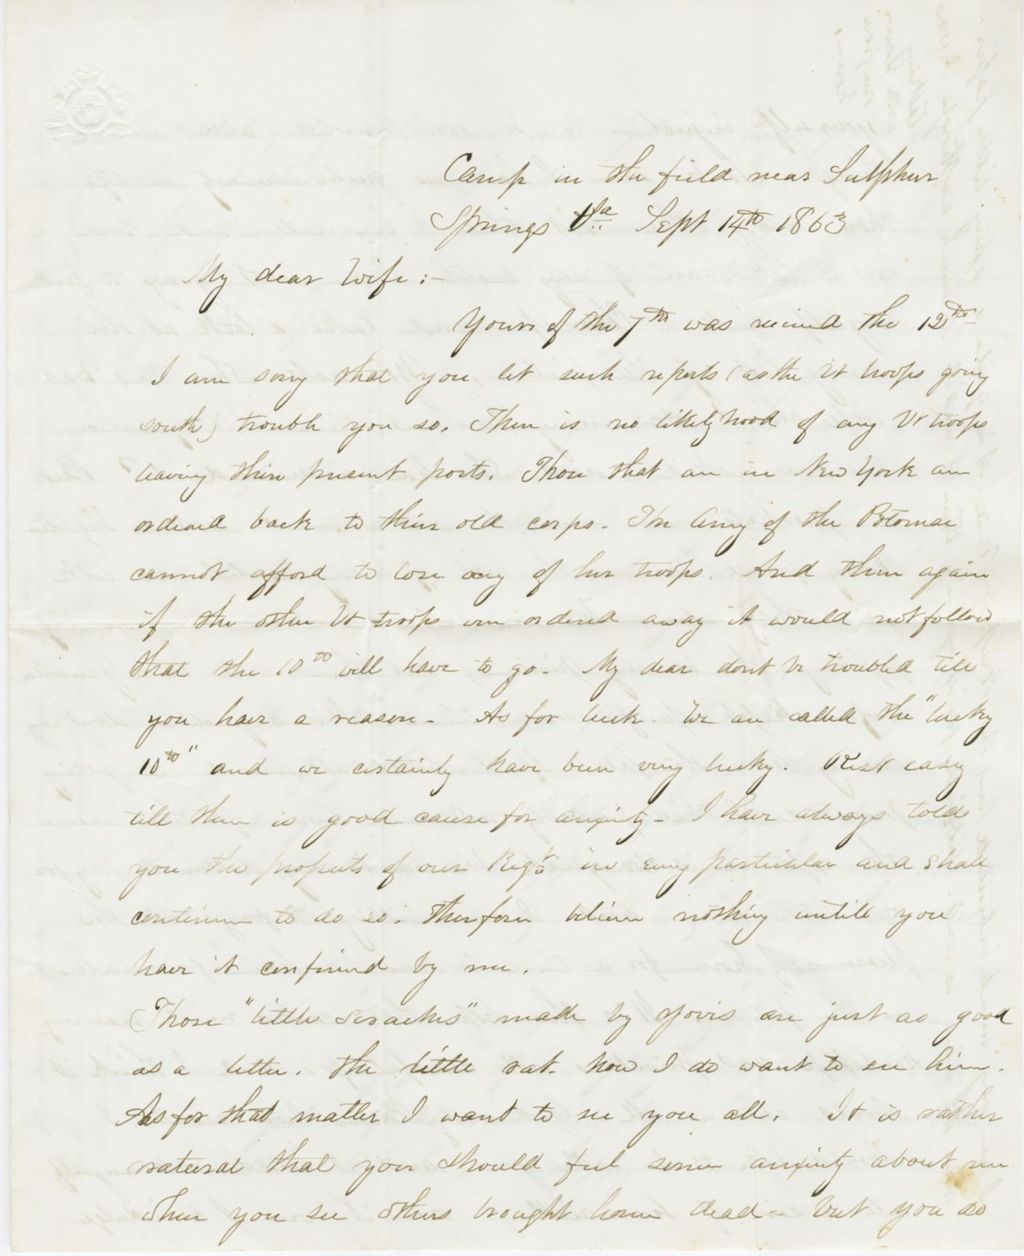 Camp in the field near Sulphur
Springs Va. Sept 14th 1863
My dear Wife :-
Yours of the 7th was received the 12th
I am sorry that you let such reports (as the Vt troops going
south) trouble you so. There is no likelyhood of any Vt troops
leaving their present posts. Those that are in New York are
ordered back to their old corps. The Army of the Potomac
cannot afford to lose any of her troops. And then again
if the other Vt troops were ordered away it would not follow
that the 10th will have to go. My dear dont be troubled till
you have a reason. As for luck. We are called the "lucky
10th" and we certainly have been very lucky. Rest easy
till there is good cause for anxiety. I have always told
you the prospects of our Regt in every particular and shall
continue to do so. Therefore believe nothing untill you
have it confirmed by me.
Those "little scratches" made by are just as good
as a letter. The little rat. how I do want to see him.
As for that matter I want to see you all. It is rather
natural that you should feel some anxiety about me
when you see others brought home dead - but you do